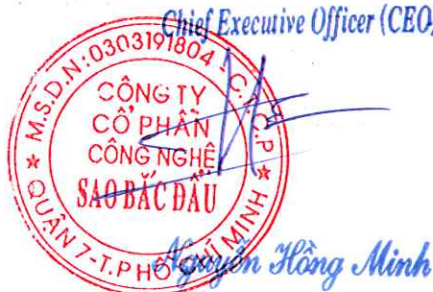 Chief Executive Officer (CEO)
M.S.D.N:0303191804 - C.T.C.P
CÔNG TY
CỔ PHẦN
CÔNG NGHỆ
SAO BẮC ĐẨU
QUẬN 7-T.P HỒ CHÍ MINH
Nguyễn Hồng Minh